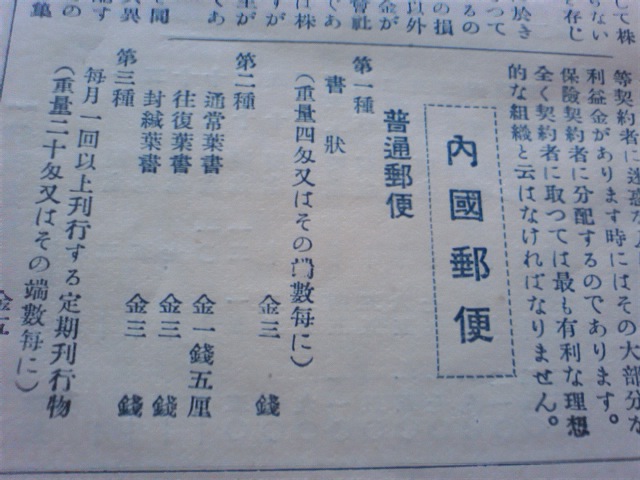 して株
らない
と存じ
於き
つて
るの
の損
以外
金が
會社
であ
は株
すが
であ
等契約者に迷惑
利益金があります時にはその大部分な
保險契約者に分配するのであります。
全く契約者に取つては最も有利な理想
的な組織と云はなければなりません。
內國郵便
普通郵便
第一種
書狀 金三錢
(重量四匁又はその端數每に)
第二種
通常葉書 金一錢五厘
往復葉書 金三錢
封緘葉書 金三錢
第三種
每月一回以上刊行する定期刊行物
(重量二十匁又はその端數每に)